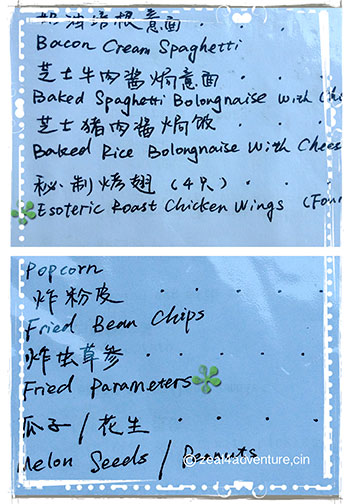 奶油培根意面 . . .
Bacon Cream Spaghetti
芝士牛肉酱焗意面 . .
Baked Spaghetti Bolongnaise with Che
芝士猪肉酱焗饭 . . .
Baked Rice Bolongnaise with Chees
秘制烤翅 (4只) . . .
Esoteric Roast Chicken Wings (Four
Popcorn
炸粉皮 . . . . .
Fried Bean Chips
炸虫草参 . . . . .
Fried Parameters
瓜子 / 花生 . . . .
Melon Seeds / Peanuts
© zeal4adventure,cin